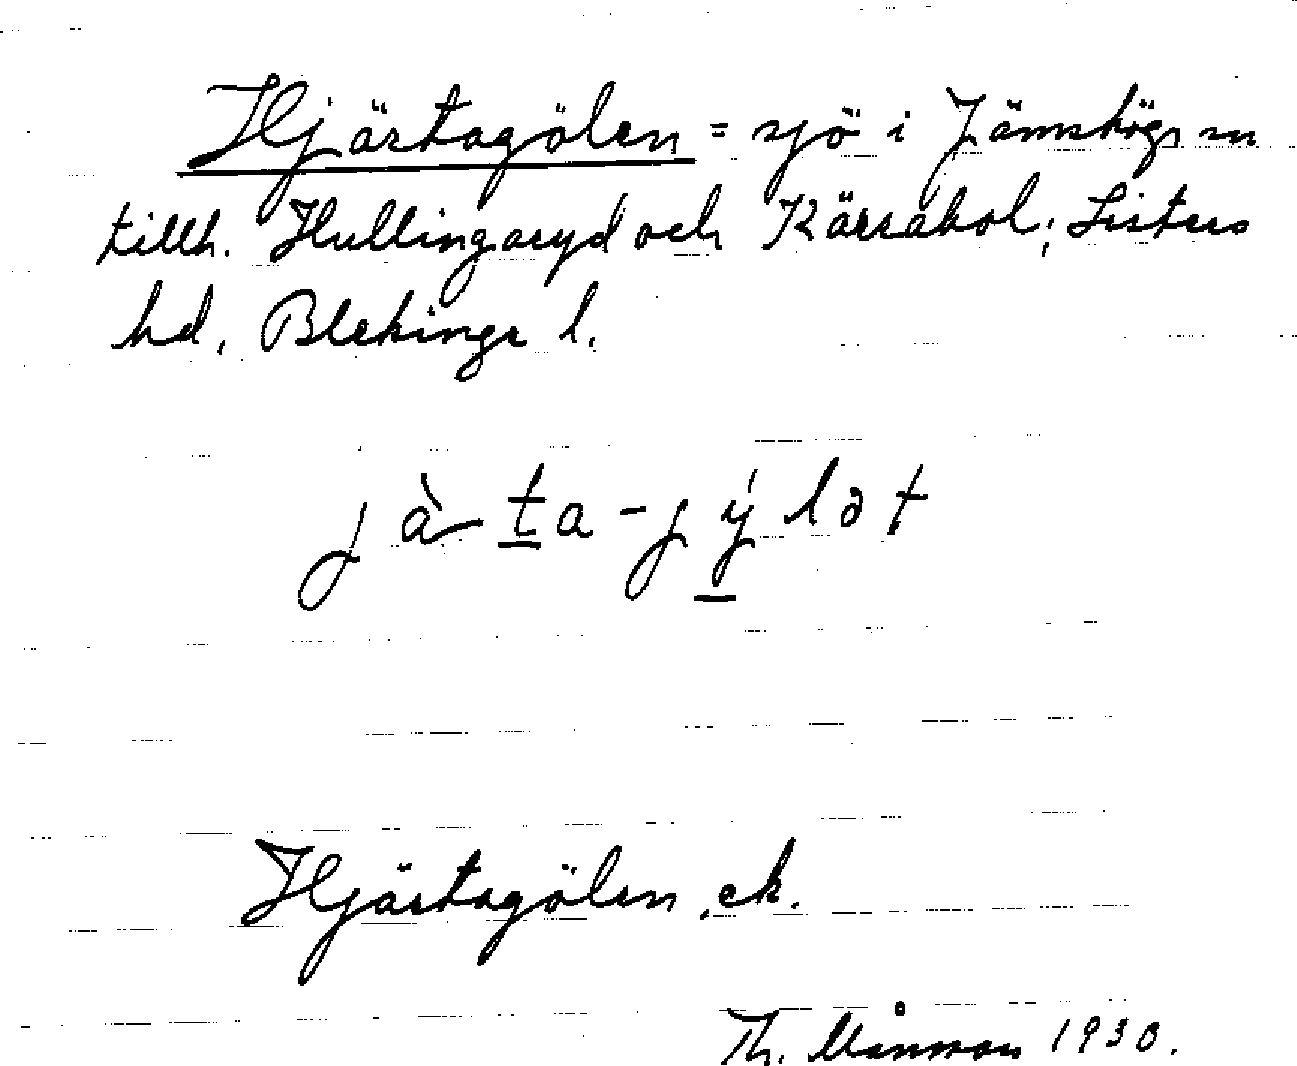 Hjärtagölen = sjö i Jämshögs sn
tillh. Hullingaryd och Kärrabol; Listers
hd, Blekinge l.
Hjärtagölen, ek.
Th. Månsson 1930.